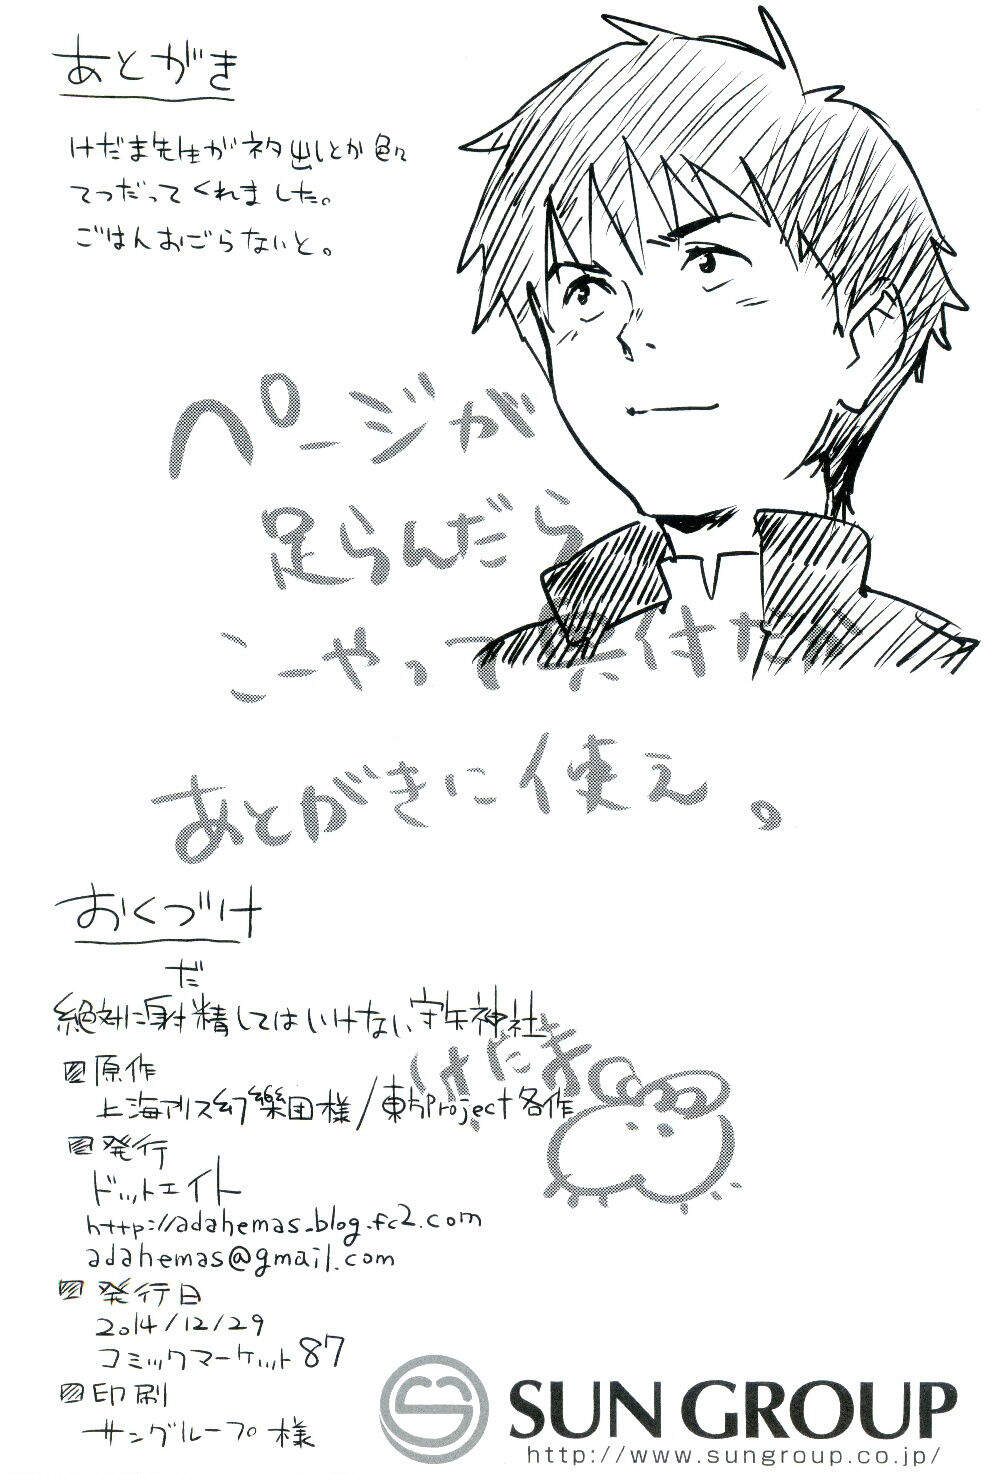 あとがき
けだま先生がネタ出しとか色々
てつだってくれました。
ごはんおごらないと。
ページが
足らんだら
こーやって
付だか
あとがきに使え。
おくづけ
だ
絶対に射精してはいけない守矢神社
けだま
原作
上海アリス幻樂団様/東方Project各作
発行
ドットエイト
http://adahemas.blog.fc2.com
adahemas@gmail.com
発行日
2014/12/29
コミックマーケット87
印刷
サングループ様
SUN GROUP
http://www.sungroup.co.jp/